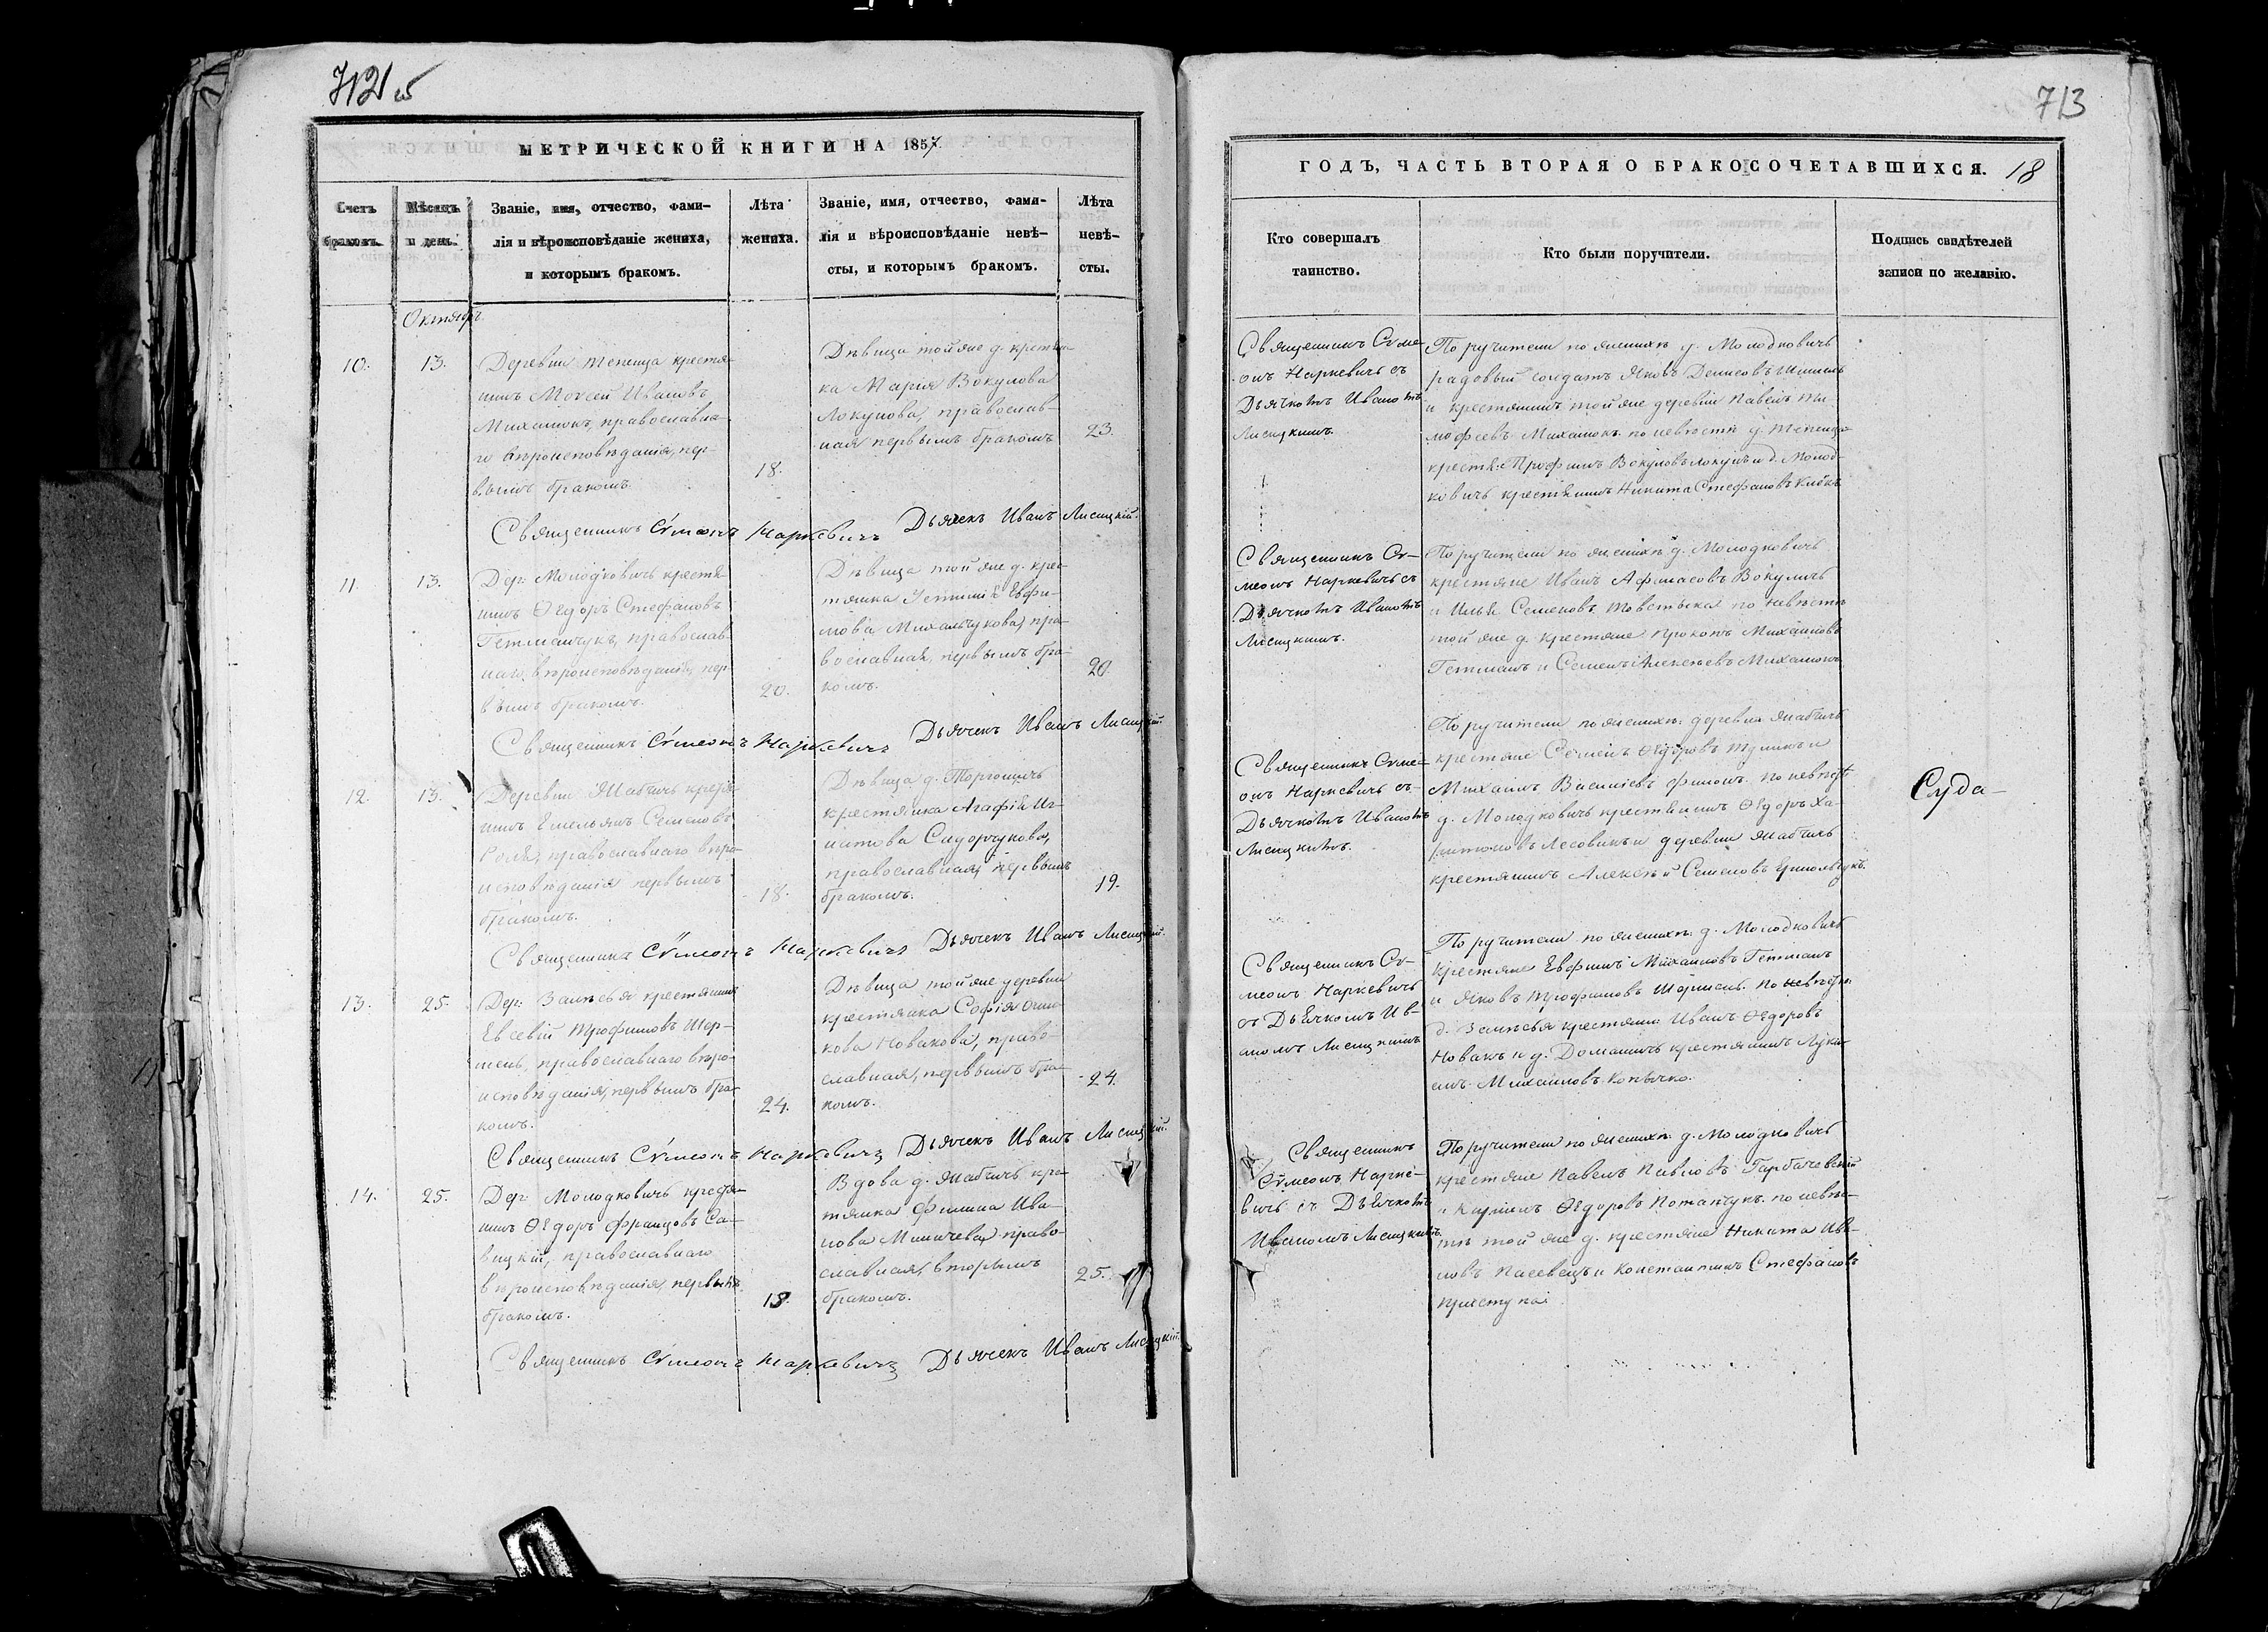 712 об
МЕТРИЧЕСКОЙ КНИГИ НА 1857.
Счетъ
браковъ.
Мѣсяцъ
и день.
Званіе, имя, отчество, фами-
лія и вѣроисповѣданіе жениха,
и которымъ бракомъ.
Лѣта
жениха.
Званіе, имя, отчество, фами-
лія и вѣроисповѣданіе невѣ-
сты, и которымъ бракомъ.
Лѣта
невѣ-
сты.
Октябрь
10.
13.
Деревни крестья-
нинъ Моѵсей Ивановъ
Михалюкъ, православна-
го вѣроисповѣданія, пер-
вымъ бракомъ.
18.
Дѣвица той же д. крестьян-
ка Марія Вокулова
Локунова, православ-
ная первымъ бракомъ
23.
Священникъ Сѵмеонъ Наркевичъ Дьячекъ Иванъ Лисицкій.
11.
13.
Дер: Молодковичъ крестья-
нинъ Ѳедоръ Стефановъ
Гетманчукъ, православ-
наго вѣроисповѣданія, пер-
вымъ бракомъ.
20.
Дѣвица той же д. крес-
тянка Евфи-
мова Михальчукова, пра-
вославная, первымъ бра-
комъ.
20.
Священникъ Сѵмеонъ Наркевичъ Дьячекъ Иванъ Лисицкій
12.
13.
Деревни крестья-
нинъ Емельянъ Семеновъ
православнаго вѣро-
исповѣданія первымъ
бракомъ.
18.
Дѣвица д.
крестянка Агафія Иг-
натова Сидорчукова,
православная, первымъ
бракомъ.
19.
Священникъ Сѵмеонъ Наркевичъ Дьячекъ Иванъ Лисицкій.
13.
25.
Дер: Залѣсья крестянинъ
Евсевій Трофимовъ Шер-
шень, православнаго вѣро-
исповѣданія, первымъ бра-
комъ.
24.
Дѣвица той же деревни
крестянка Софія
кова Новакова, право-
славная, первымъ бра-
комъ.
24.
Священникъ Сѵмеонъ Наркевичъ Дьячекъ Иванъ Лисицкій.
14.
25.
Дер: Молодковичъ крестья-
нинъ Ѳедоръ Францовъ Са-
вицкій, православнаго
вѣроисповѣданія, первымъ
бракомъ.
18.
Вдова д. кре-
стянка Ива-
нова право-
славная, вторымъ
бракомъ.
25.
Священникъ Сѵмеонъ Наркевичъ Дьячекъ Иванъ Лисицкій.
713
ГОДЪ, ЧАСТЬ ВТОРАЯ О БРАКОСОЧЕТАВШИХСЯ. 18
Кто совершалъ
таинство.
Кто были поручители.
Подпись свидѣтелей
записи по желанію.
Священникъ Сѵме-
онъ Наркевичъ съ
Дьячкомъ Иваномъ
Лисицкимъ.
Поручители по женихѣ д. Молодковичъ
рядовый солдатъ Яковъ Денисовъ
и крестянинъ той же деревни Павелъ Ти-
мофеевъ Михалюкъ. по невѣстѣ д.
крестя: Трофимъ Вокуловъ Локунъ и д. Молод-
ковичъ крестянинъ Никита Стефановъ
Священникъ Сѵ-
меонъ Наркевичъ съ
Дьячкомъ Иваномъ
Лисицкимъ.
Поручители по женихѣ д. Молодковичъ
крестяне Иванъ Вокуличъ
и Илья Семеновъ по невѣстѣ
той же д. крестяне Прокопъ Михаиловъ
Гетманъ и Семенъ Алексѣевъ Михалюкъ
Священникъ Сѵме-
онъ Наркевичъ съ
Дьячкомъ Иваномъ
Лисицкимъ.
Поручители по женихѣ: деревни
крестяне Семенъ Ѳедоровъ и
Михаилъ Василіевъ по невѣстѣ
д. Молодковичъ крестянинъ Ѳедоръ Ха-
ритоновъ Лесовикъ и деревни
крестянинъ Алексѣй Семеновъ Ермольчукъ.
Суда-
Священникъ Сѵ-
меонъ Наркевичъ
съ Дьячкомъ Ив-
аномъ Лисицкимъ
Поручители по женихѣ: д. Молодковичъ
крестяне Евфимъ Михаиловъ Гетманъ
и Яковъ Трофимовъ Шершень. по невѣстѣ
д. Залѣсья крестянинъ Иванъ Ѳедоровъ
Новакъ и д. Домашичъ крестянинъ Луки-
анъ Михаиловъ Копычко.
Священникъ
Сѵмеонъ Нарке-
вичъ съ Дьячкомъ
Иваномъ Лисицкимъ.
Поручители по женихѣ: д. Молодковичъ
крестяне Павелъ Павловъ Гарбачевскій
и Ѳедоровъ Потапчукъ. по невѣс-
тѣ той же д. крестяне Никита Ива-
новъ и Константинъ Стефановъ
Приступа